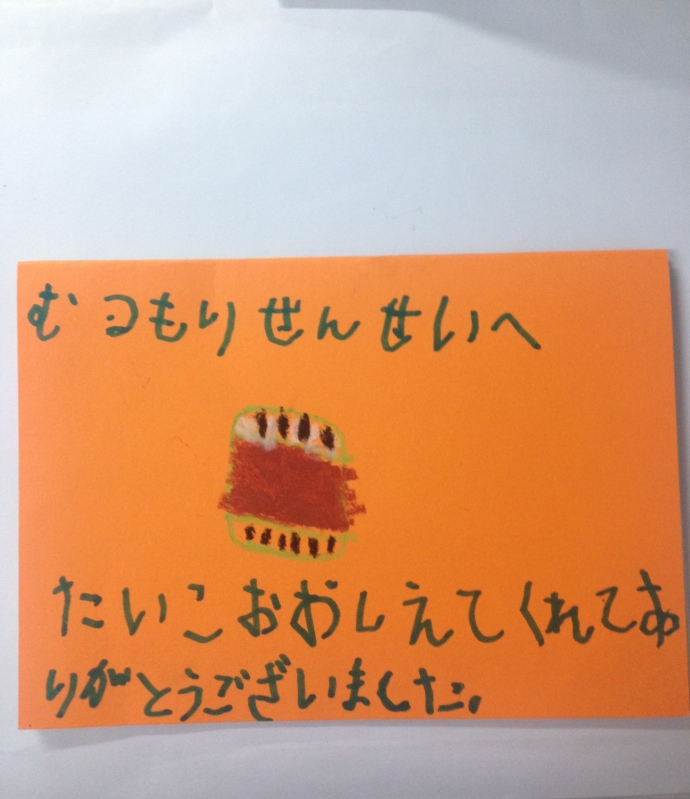 むつもりぜんせいへ
たいこおおしえてくれてあ
りがとうございました。